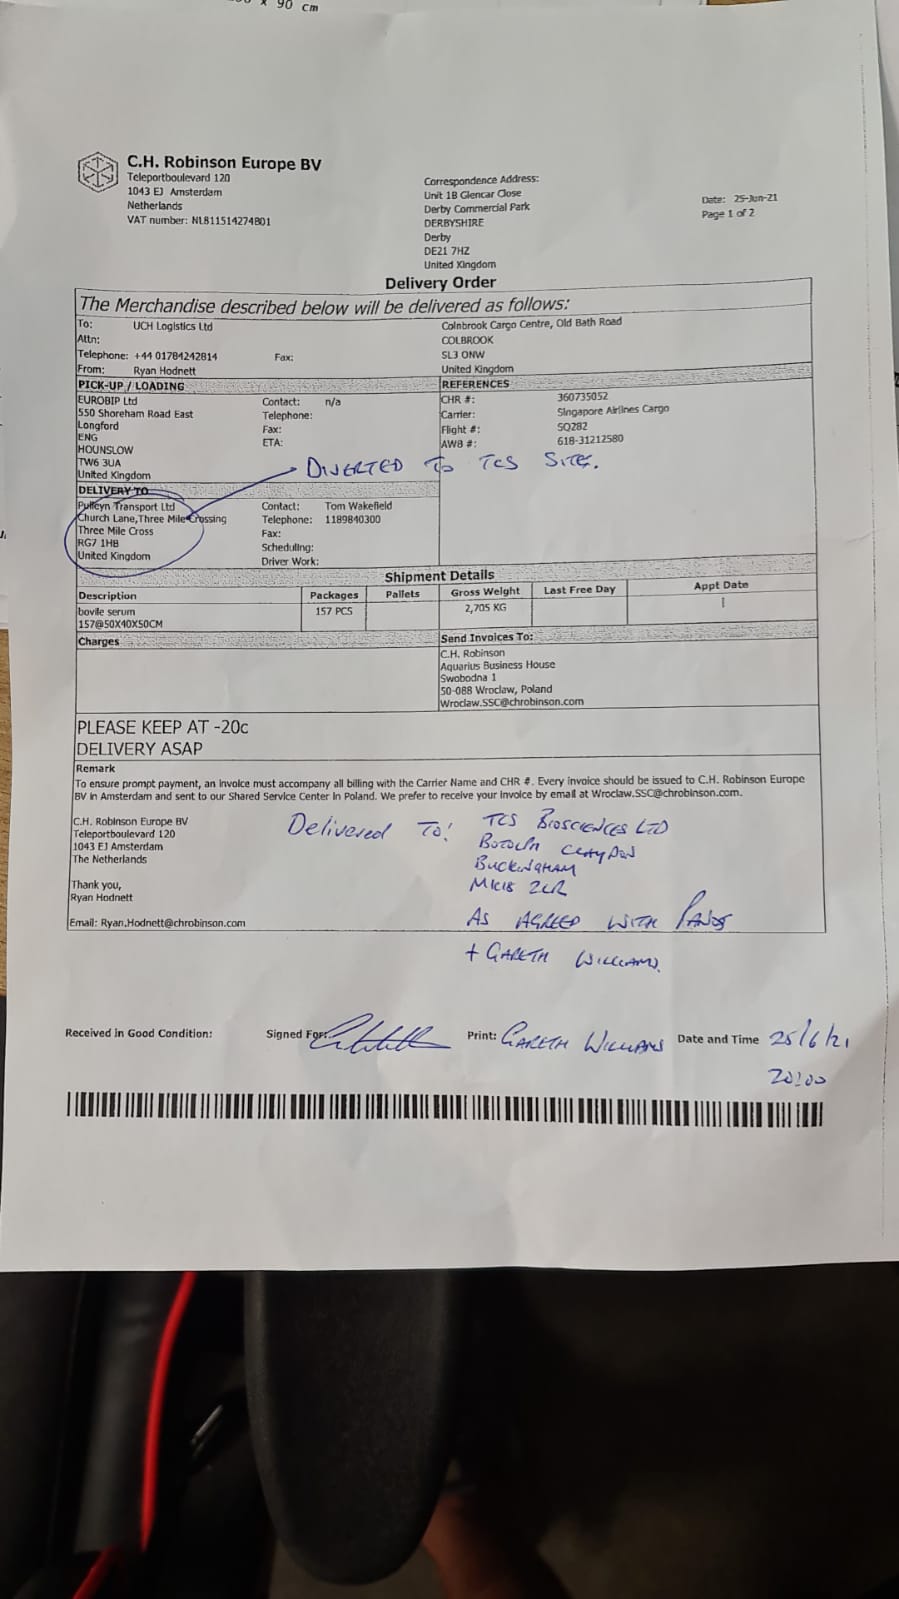 x 90 cm
C.H. Robinson Europe BV
Teleportboulevard 120
1043 EJ Amsterdam
Netherlands
VAT number: NL811514274B01
Correspondence Address:
Unit 1B Glencar Close
Derby Commercial Park
DERBYSHIRE
Derby
DE21 7HZ
United Kingdom
Date: 25-Jun-21
Page 1 of 2
Delivery Order
The Merchandise described below will be delivered as follows:
To: UCH Logistics Ltd
Attn:
Telephone: +44 01784242814 Fax:
From: Ryan Hodnett
Colnbrook Cargo Centre, Old Bath Road
COLBROOK
SL3 0NW
United Kingdom
PICK-UP / LOADING
EUROBIP Ltd
550 Shoreham Road East
Longford
ENG
HOUNSLOW
TW6 3UA
United Kingdom
Contact: n/a
Telephone:
Fax:
ETA:
REFERENCES
CHR #: 360735052
Carrier: Singapore Airlines Cargo
Flight #: SQ282
AWB #: 618-31212580
DIVERTED To TCS SITE.
DELIVERY TO
Pulleyn Transport Ltd
Church Lane,Three Mile Crossing
Three Mile Cross
RG7 1HB
United Kingdom
Contact: Tom Wakefield
Telephone: 1189840300
Fax:
Scheduling:
Driver Work:
Shipment Details
Description Packages Pallets Gross Weight Last Free Day Appt Date
bovile serum 157 PCS 2,705 KG
157@50X40X50CM
Charges
Send Invoices To:
C.H. Robinson
Aquarius Business House
Swobodna 1
50-088 Wroclaw, Poland
Wroclaw.SSC@chrobinson.com
PLEASE KEEP AT -20c
DELIVERY ASAP
Remark
To ensure prompt payment, an invoice must accompany all billing with the Carrier Name and CHR #. Every invoice should be issued to C.H. Robinson Europe
BV in Amsterdam and sent to our Shared Service Center in Poland. We prefer to receive your invoice by email at Wroclaw.SSC@chrobinson.com.
C.H. Robinson Europe BV
Teleportboulevard 120
1043 EJ Amsterdam
The Netherlands
Thank you,
Ryan Hodnett
Email: Ryan.Hodnett@chrobinson.com
Delivered To: TCS BIOSCIENCES LTD
BOTOLPH CLAYDON
BUCKINGHAM
MK18 2LR
AS AGREED WITH
+ GARETH WILLIAMS.
Received in Good Condition: Signed For: Print: GARETH WILLIAMS Date and Time 25/6/21
20:00